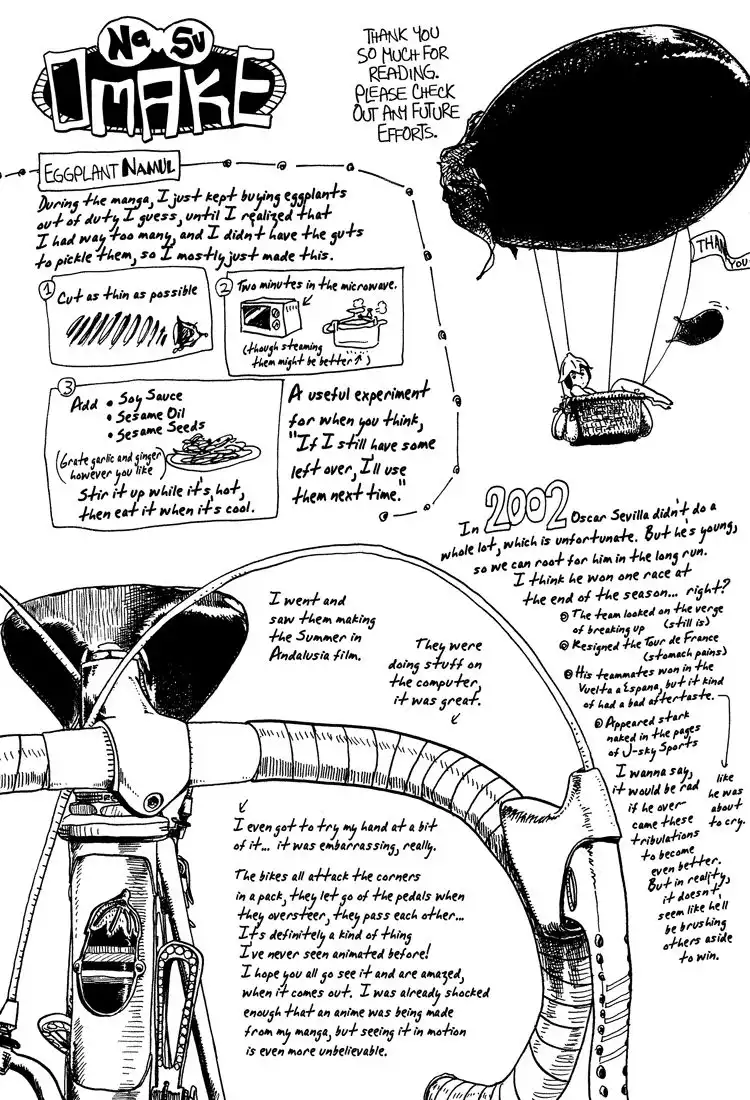 NaSu
OMAKE
THANK YOU
SO MUCH FOR
READING.
PLEASE CHECK
OUT ANY FUTURE
EFFORTS.
THANK
YOU
EGGPLANT NAMUL
During the manga, I just kept buying eggplants
out of duty I guess, until I realized that
I had way too many, and I didn't have the guts
to pickle them, so I mostly just made this.
1
Cut as thin as possible
2
Two minutes in the microwave.
(though steaming
them might be better↑)
3
Add • Soy Sauce
• Sesame Oil
• Sesame Seeds
(Grate garlic and ginger
however you like)
Stir it up while it's hot,
then eat it when it's cool.
A useful experiment
for when you think,
"If I still have some
left over, I'll use
them next time."
In 2002 Oscar Sevilla didn't do a
whole lot, which is unfortunate. But he's young,
so we can root for him in the long run.
I think he won one race at
the end of the season... right?
The team looked on the verge
of breaking up (still is)
Resigned the Tour de France
(stomach pains)
His teammates won in the
Vuelta a España, but it kind
of had a bad aftertaste.
Appeared stark
naked in the pages
of J-sky Sports
like
he was
about
to cry.
I wanna say,
it would be rad
if he over-
came these
tribulations
to become
even better.
But in reality,
it doesn't
seem like he'll
be brushing
others aside
to win.
I went and
saw them making
the Summer in
Andalusia film.
They were
doing stuff on
the computer,
it was great.
I even got to try my hand at a bit
of it... it was embarrassing, really.
The bikes all attack the corners
in a pack, they let go of the pedals when
they oversteer, they pass each other...
It's definitely a kind of thing
I've never seen animated before!
I hope you all go see it and are amazed,
when it comes out. I was already shocked
enough that an anime was being made
from my manga, but seeing it in motion
is even more unbelievable.